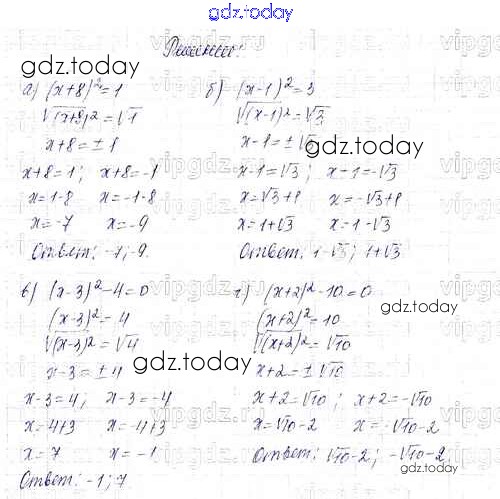 gdz.today
Решение:
gdz.today
а) (x+8)²=1
√(x+8)²=√1
x+8=±1
x+8=1; x+8=-1
x=1-8 x=-1-8
x=-7 x=-9
Ответ: -7; -9.
б) (x-1)²=3
√(x-1)²=√3
x-1=±√3
gdz.today
x-1=√3; x-1=-√3
x=√3+1 x=-√3+1
x=1+√3 x=1-√3
Ответ: 1-√3; 1+√3
в) (x-3)²-4=0
(x-3)²=4
√(x-3)²=√4
gdz.today
x-3=±4
x-3=4; x-3=-4
x=4+3 x=-4+3
x=7 x=-1
Ответ: -1; 7.
г) (x+2)²-10=0
gdz.today
(x+2)²=10
√(x+2)²=√10
x+2=±√10
x+2=√10; x+2=-√10
x=√10-2 x=-√10-2
Ответ: √10-2; -√10-2.
gdz.today